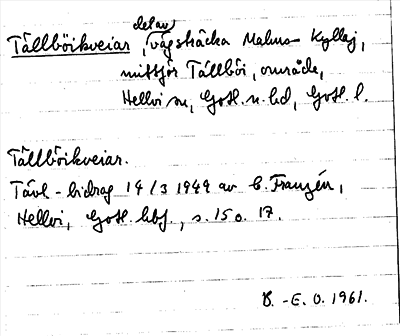 del av
Tällböikveiar, vägsträcka Malms- Kyllaj,
mittför Tällböi, område,
Hellvi sn, Gotl. n. hd, Gotl. l.
Tällböikveiar.
Tävl-bidrag 14/3 1949 av C. Franzén,
Hellvi, Gotl. hbf., s. 15 o. 17.
B.-E. O. 1961.